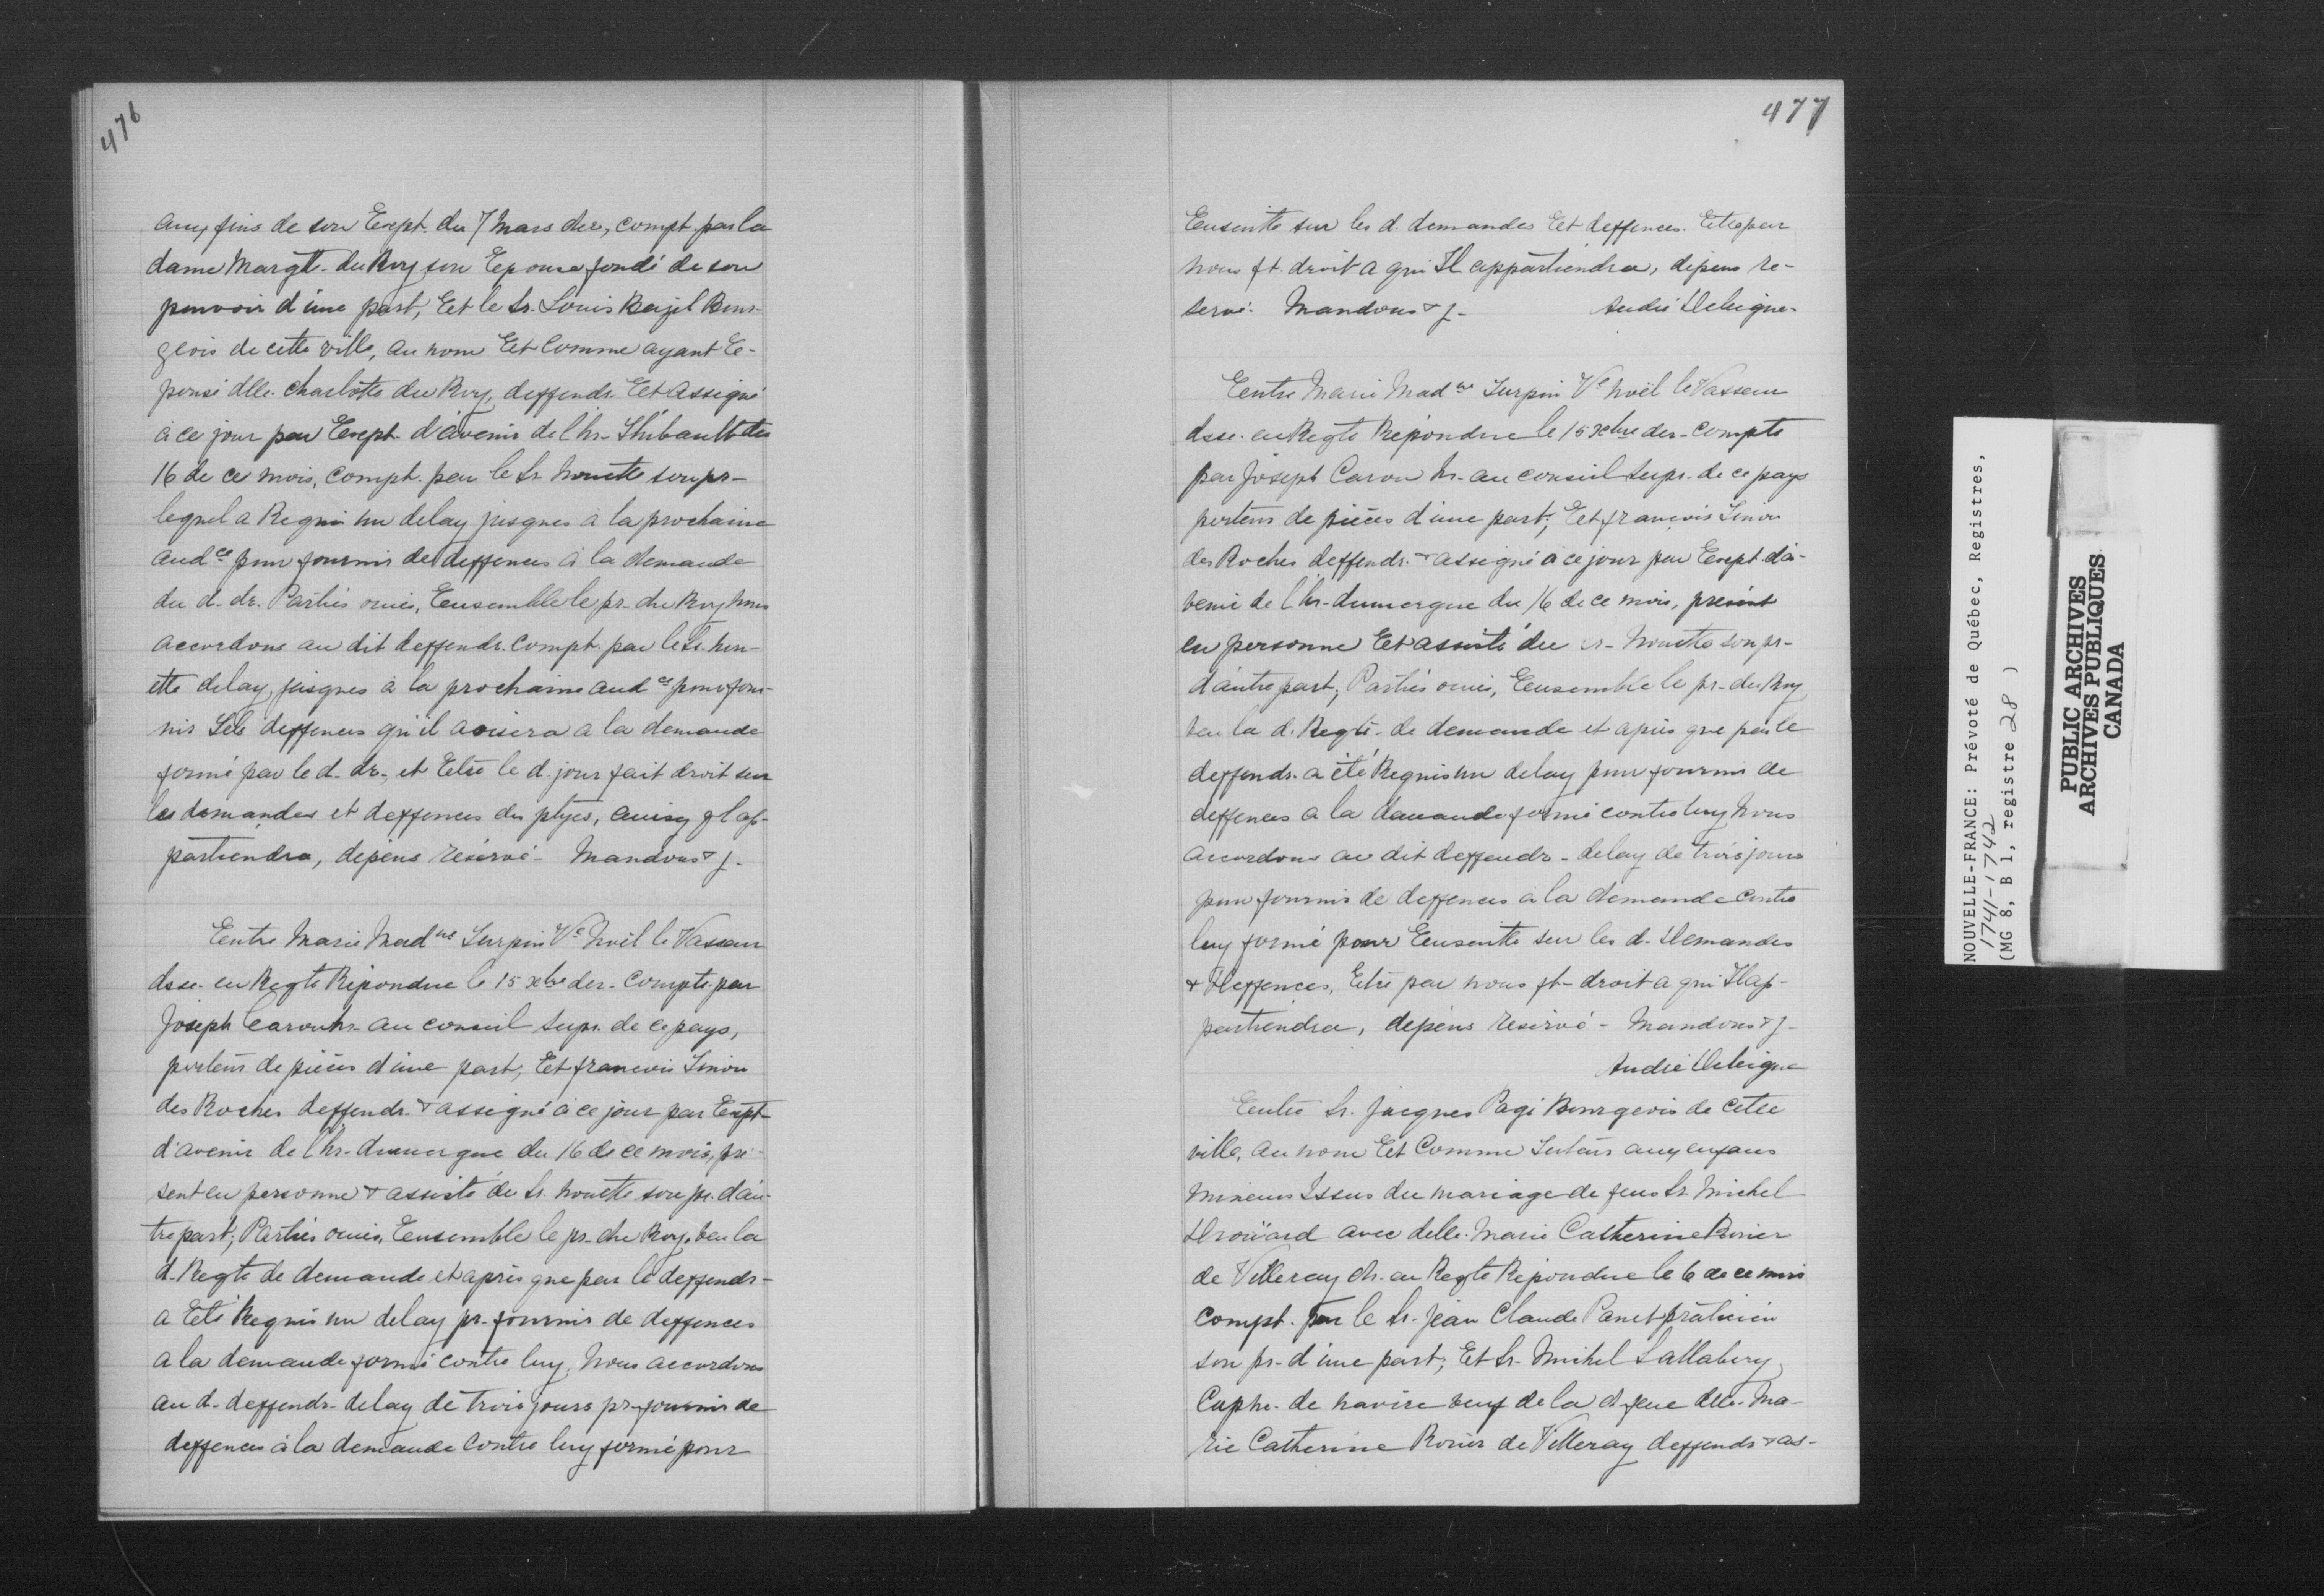 476
aux fins de son Eexpt. du 7 Mars der, compt. par la
dame Margte. du Roy son Epouse fondé de son
pouvoir d'une part, Eet le Sr. Louis Bazil Bour-
geois de cette ville, au nom Eet Comme ayant Ee-
pousé dlle. Charlotte du Roy, deffendr. Eet Assigné
à ce jour par Eexpt. d'avenir de l'hr. Thibault du
16 de ce mois, compt. par le Sr. Nouette son pr-
lequel a Requis un delay jusques à la prochaine
audce pour fournir de deffences à la demande
du d. dr. Parties ouies, Eensemble le pr. du Roy Nous
accordons au dit deffendr. compt. par le Sr. nou-
ette delay, jusques à la prochaine audce pour four-
nir Tels deffences qu'il avisera a la demande
formé par le d. dr., et Eetre le d. jour fait droit sur
les demandes et deffences des ptyes, ainsy ql ap-
partiendra, dépens réservé - Mandons & j.
Eentre Marie Madne Turpin Ve Noël le Vasseur
dsse. en Regte Répondue le 15 xbre der. compte. par
Joseph Caron hr. au conseil supr. de ce pays,
porteur de pièces d'une part, Eet francois Simon
des Roches deffendr. & assigné à ce jour par Eexpt.
d'avenir de l'hr. dumergue du 16 de ce mois, pré-
sent en personne & assisté du Sr. Nouette son pr. d'au-
tre part; Parties ouies, Eensemble le pr. du Roy, veu la
d. Regte de demande et après que par le deffendr-
a Eeté Requis un delay pr. fournir de deffences
a la demande formé contre luy, Nous accordons
au d. deffendr. delay de trois jours pr. fournir de
deffences à la demande contre luy formé pour
477
Eensuitte sur les d. demandes Eet deffences. Eetre par
nous ft. droit a qui Il appartiendra, dépens ré-
servé. Mandons & j. André Deleigne.
Eentre Marie Madne Turpin Ve Noël le Vasseur
dsse. en Regte Répondue le 15 xbre der. compte
par Joseph Caron hr. au conseil supr. de ce pays
porteur de pièces d'une part; Eet françois Simon
des Roches deffendr. & assigné à ce jour par Eexpt. d'a-
venir de l'hr. dumergue du 16 de ce mois, présent
en personne Eet assisté du Sr. Nouette son pr-
d'autre part; Parties ouies, Eensemble le pr. du Roy
veu la d. Regte. de demande et après que par le
deffendr. a été Requis un delay pour fournir de
deffences a la demande formé contre luy Nous
accordons au dit deffendr. delay de trois jours
pour fournir de deffences à la demande contre
luy formé pour Eensuitte sur les d. Demandes
& Deffences, Eetre par nous ft. droit a qui Il ap-
partiendra, dépens réservé - Mandons & j.
André Deleigne
Eentre Sr. Jacques Pagé Bourgeois de cette
ville, au nom Eet Comme Tuteur aux enfans
mineurs Issus du mariage de feus Sr. Michel
Drouard avec delle. Marie Catherine Roüer
de Villeray dr. en Regte Répondue le 6 de ce mois
compt. par le Sr. Jean Claude Panet praticien
son pr. d'une part; Et Sr. Michel Sallabery
Capne. de navire veuf de la d. feue dlle. Ma-
rie Catherine Roüer de Villeray deffendr. & as-
NOUVELLE-FRANCE: Prévoté de Québec, Registres,
1741-1742
(MG 8, B 1, registre 28 )
PUBLIC ARCHIVES
ARCHIVES PUBLIQUES
CANADA